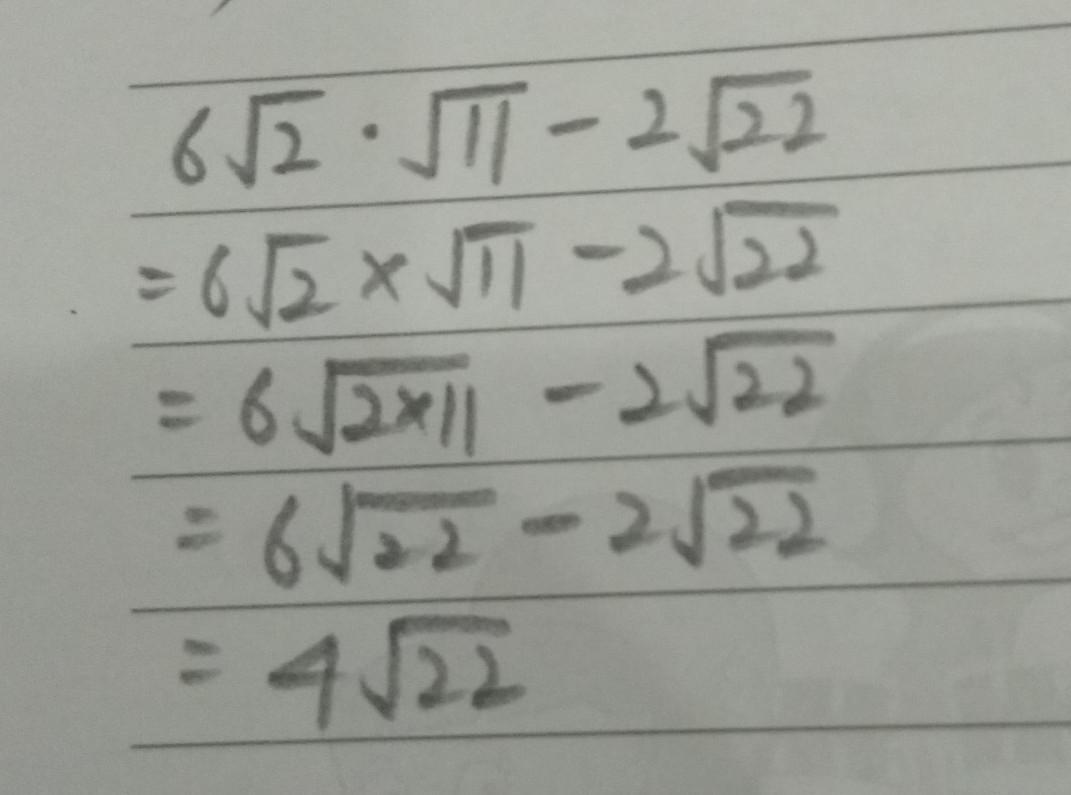 6√2 · √11 − 2√22
= 6√2 × √11 − 2√22
= 6√(2×11) − 2√22
= 6√22 − 2√22
= 4√22